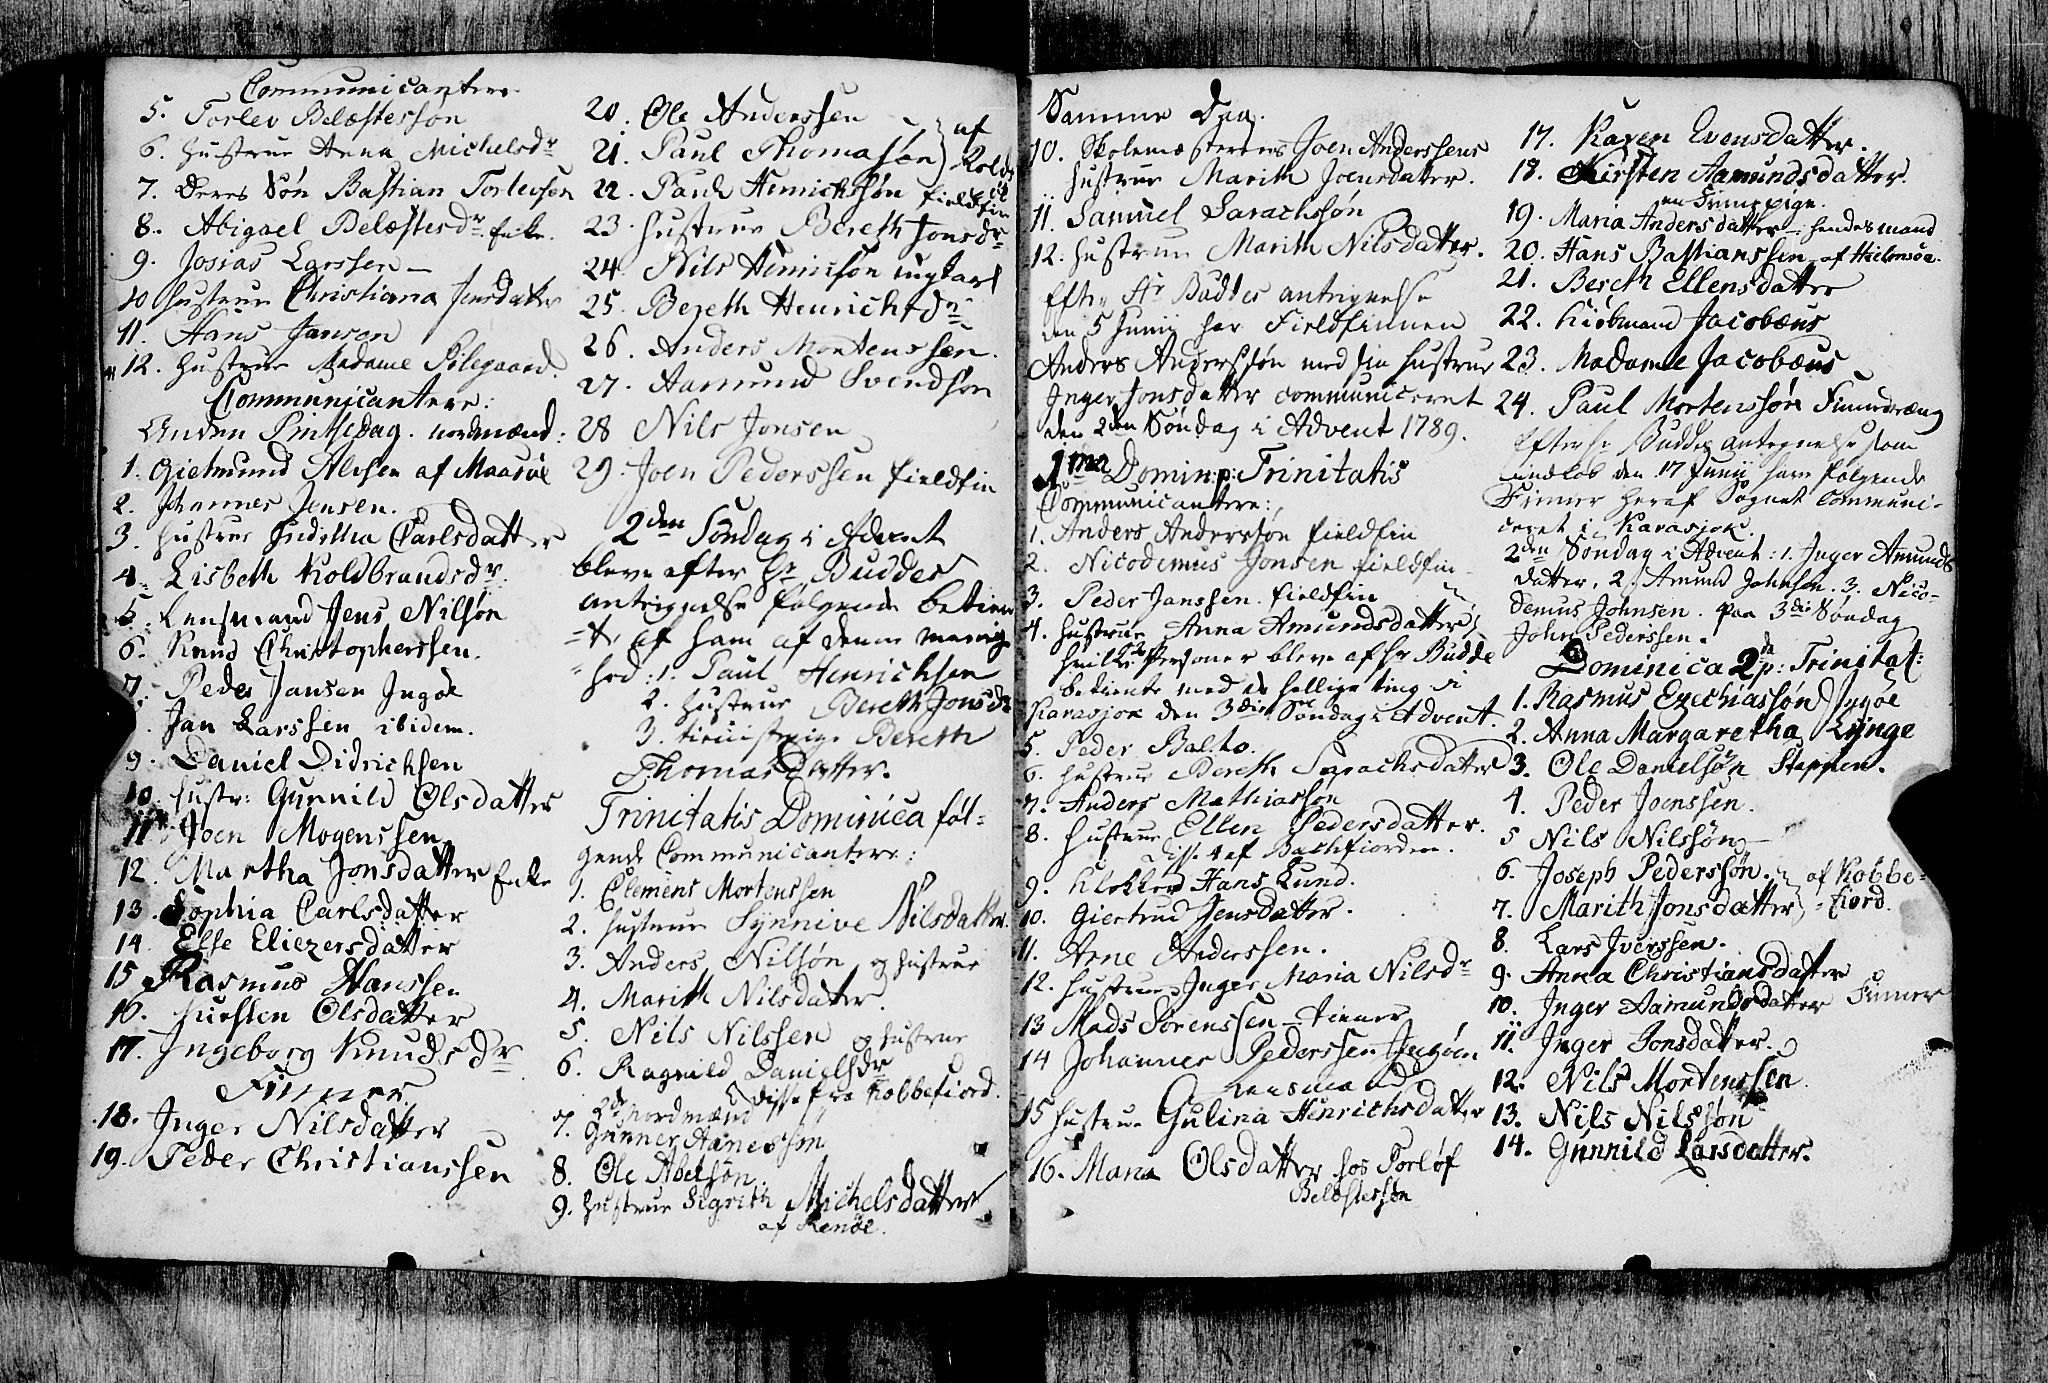 Communicantere
5. Torlev Belæstesson
6. Hustrue Anna Michelsdr
7. Deres Søn Bastian Torlevsen
8. Abigael Belæstersdr Enke.
9. Josias Larssen
10 Hustrue Christiana Jensdatter
11. Hans Jansen
12. Hustrue Madame Pilegaard.
Communicantere:
Anden Pintsedag. nordmænd:
1. Gietmund Alvsen af Maasøe
2. Johannes Jensen.
3. Hustrue Judithа Carlsdatter
4. Lisbeth Koldbrandsdr.
5. Lensmand Jens Nilsøn
6. Knud Christophersen.
7. Peder Jansen Ingøe
Jan Larssen ibidem.
9. Daniel Didrichsen
10. hustr: Gunnild Olsdatter
11 Joen Mogenssen
12. Martha Jonsdatter Enke
13. Sophia Carlsdatter
14. Else Eliezersdatter
15 Rasmus Hanssen
16. Kirsten Olsdatter
17. Ingeborg Knudsdr
Finner
18. Inger Nilsdatter
19. Peder Christianssen
20. Ole Anderssen
21. Paul Thomasøn af
22. Paul Henrichsøn fieldfin
23. Hustrue Bereth Jonsdr
24. Nils Henrisøn ungkarl
25. Bereth Henrichsdr
26. Anders Mortenssen.
27. Aamund Svendsøn
28 Nils Jonsen
29. Joen Pederssen fieldfin
2den Søndag i Advent
bleve efter Hr Buddes
antegnelse følgende betien
-t, af ham af denne menig
-hed: 1. Paul Henrichsen
2. Hustrue Bereth Jonsdr
3. tienistepige Bereth
Thomasdatter.
Trinitatis Dominica føl-
gende Communicantere:
1. Clemens Mortenssen
2. hustrue Synnive Nilsdatter.
3. Anders Nilsøn og hustrue
4. Marith Nilsdatter.
5. Nils Nilssen og hustrue
6. Ragnild Danielsdr
disse fra Kobbefiord.
Nordmænd
7. Gunner Hanessøn
8. Ole Abelsøn.
9. Hustrue Sigrith Michelsdatter
af Renøe.
Samme Dag.
10. Skolemesterens Joen Anderssens
hustrue Marith Joensdatter.
11. Samuel Sarachssøn
12. hustrue Marith Nilsdatter.
Efter Hr Buddes antegnelse
den 5 Junii har Fieldfinnen
Anders Anderssøn med sin hustrue
Inger Jonsdatter communiceret
den 2den Søndag i Advent 1789.
1ma Domin: p: Trinitatis
Communicantere:
1. Anders Anderssøn fieldfin
2. Nicodemus Jonsen fieldfin
3. Peder Janssen fieldfin
4. hustrue Anna Amundsdatter
hvilke Personer bleve af Hr Budde
betiente med de hellige ting i
Karasjok den 3die Søndag i Advent.
5. Peder Balto.
6. hustrue Bereth Sarachsdatter
7. Anders Mathiassøn
8. Hustrue Ellen Pedersdatter.
Disse 4 af Bachfiorden.
9. Klokker Hans Lund.
10. Giertrud Jensdatter.
11. Arne Anderssen.
12. hustrue Inger Maria Nilsdr
13 Mads Sørenssen - tiener
14 Johannes Pederssen Ingøen
Lensmand
15 hustrue Gulina Henrichsdatter
16. Maria Olsdatter hos Torløf
Belæstessøn
17. Karen Evensdatter.
18. Kirsten Aamundsdatter.
en Finnepige.
19. Maria Andersdatter - hendes mand
20. Hans Bastianssen af Hielmsøe.
21. Bereth Ellensdatter
22. Kiøbmand Jacobæus
23. Madame Jacobæus
24. Paul Mortenssøn Finnedreng
Efter Hr Buddes antegnelse som
indkob den 17 Junii have følgende
Finner heraf Sognet Communi-
ceret i Karasjok.
2den Søndag i Advent: 1. Inger Amunds
datter, 2. Amund Johnsen. 3. Nico-
demus Johnsen. paa 3die Søndag
John Pederssen.
Dominica 2da p: Trinitat:
1. Rasmus Ezechiassøn Ingøe
2. Anna Margaretha Kynge
3. Ole Danielsøn Stappen.
4. Peder Joenssen.
5 Nils Nilssøn
6. Joseph Pederssøn. af Kobbe-
7. Marith Jonsdatter -fiord.
8. Lars Iverssen.
9. Anna Christiansdatter
10. Inger Aamundsdatter Finner
11. Inger Jonsdatter.
12. Nils Mortenssen
13. Nils Nilssøn
14. Gunnild Larsdatter.